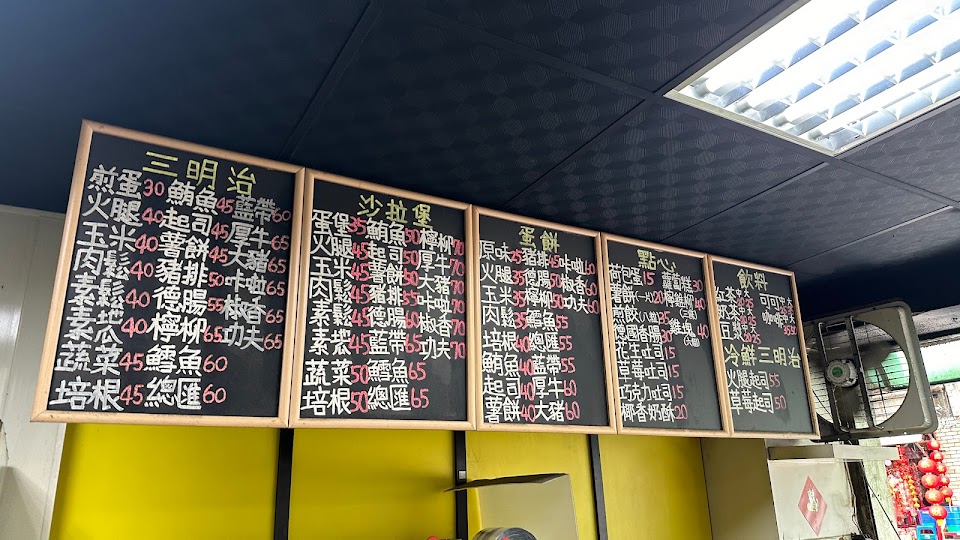 三明治
煎蛋30 鮪魚45 藍帶60
火腿40 起司45 厚牛65
玉米40 薯餅45 大豬65
肉鬆40 豬排50 咖啦65
素鬆40 德腸55 椒香65
素忿40 檸柳65 功夫65
蔬菜45 鱈魚60
培根45 總匯60
沙拉堡
蛋堡35 鮪魚50 檸柳70
火腿45 起司50 厚牛70
玉米45 薯餅50 大豬70
肉鬆45 豬排55 咔啦70
素鬆45 德腸60 椒香70
素忿45 藍帶65 功夫70
蔬菜50 鱈魚65
培根50 總匯65
蛋餅
原味25 豬排45 咔啦60
火腿35 德腸50 椒香60
玉米35 檸柳50 功夫60
肉鬆35 鱈魚55
培根40 總匯55
鮪魚40 藍帶55
起司40 厚牛60
薯餅40 大豬60
點心
荷包蛋15 蘿蔔糕30
薯餅(一片)20 檸雞柳40
煎餃(八粒)25 (三條)
德國香腸30 雞塊40
花生吐司15 (六塊)
草莓吐司15
巧克力吐司15
椰香奶酥20
飲料
紅茶 20 25
奶茶 25
豆漿 20 25
可可
咖啡
冷鮮三明治
火腿起司55
草莓起司50